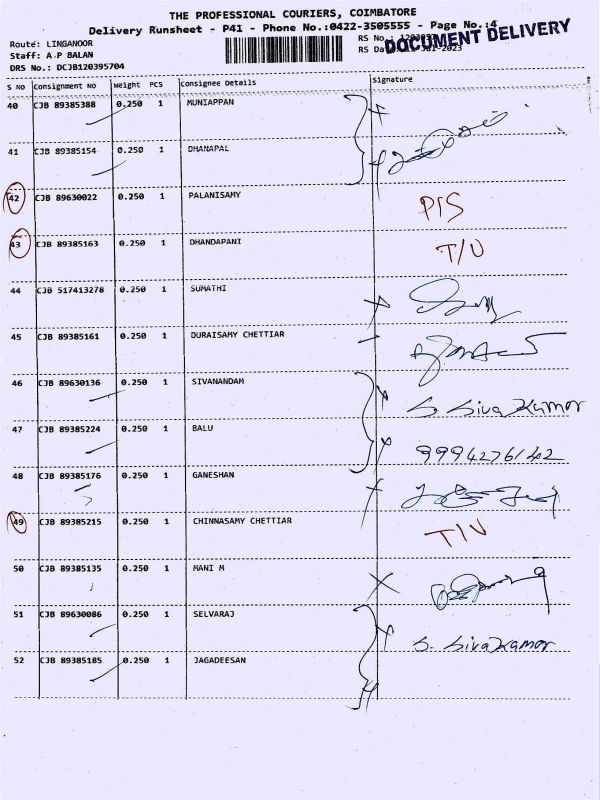 THE PROFESSIONAL COURIERS, COIMBATORE
Delivery Runsheet - P41 - Phone No.:0422-3505555 - Page No.:4
Route: LINGANOOR
RS No.:
Staff: A.P BALAN
RS Da
DOCUMENT DELIVERY
DRS No.: DCJB120395704
S NO Consignment No Weight PCS Consignee Details Signature
40 CJB 89385388 0.250 1 MUNIAPPAN
41 CJB 89385154 0.250 1 DHANAPAL
42 CJB 89630022 0.250 1 PALANISAMY P/S
43 CJB 89385163 0.250 1 DHANDAPANI T/U
44 CJB 517413278 0.250 1 SUMATHI
45 CJB 89385161 0.250 1 DURAISAMY CHETTIAR
46 CJB 89630136 0.250 1 SIVANANDAM S. Siva Kumar
47 CJB 89385224 0.250 1 BALU 9994276142
48 CJB 89385176 0.250 1 GANESHAN
49 CJB 89385215 0.250 1 CHINNASAMY CHETTIAR T/U
50 CJB 89385135 0.250 1 MANI M
51 CJB 89630086 0.250 1 SELVARAJ S. Siva Kumar
52 CJB 89385185 0.250 1 JAGADEESAN